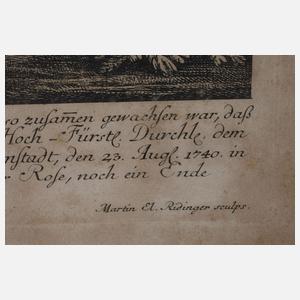 so zusam̄en gewachsen war, daß
Hoch-Fürstl. Durchl. dem
nstadt, den 23. Augl. 1740. in
Rose, noch ein Ende
Martin El. Ridinger sculps.